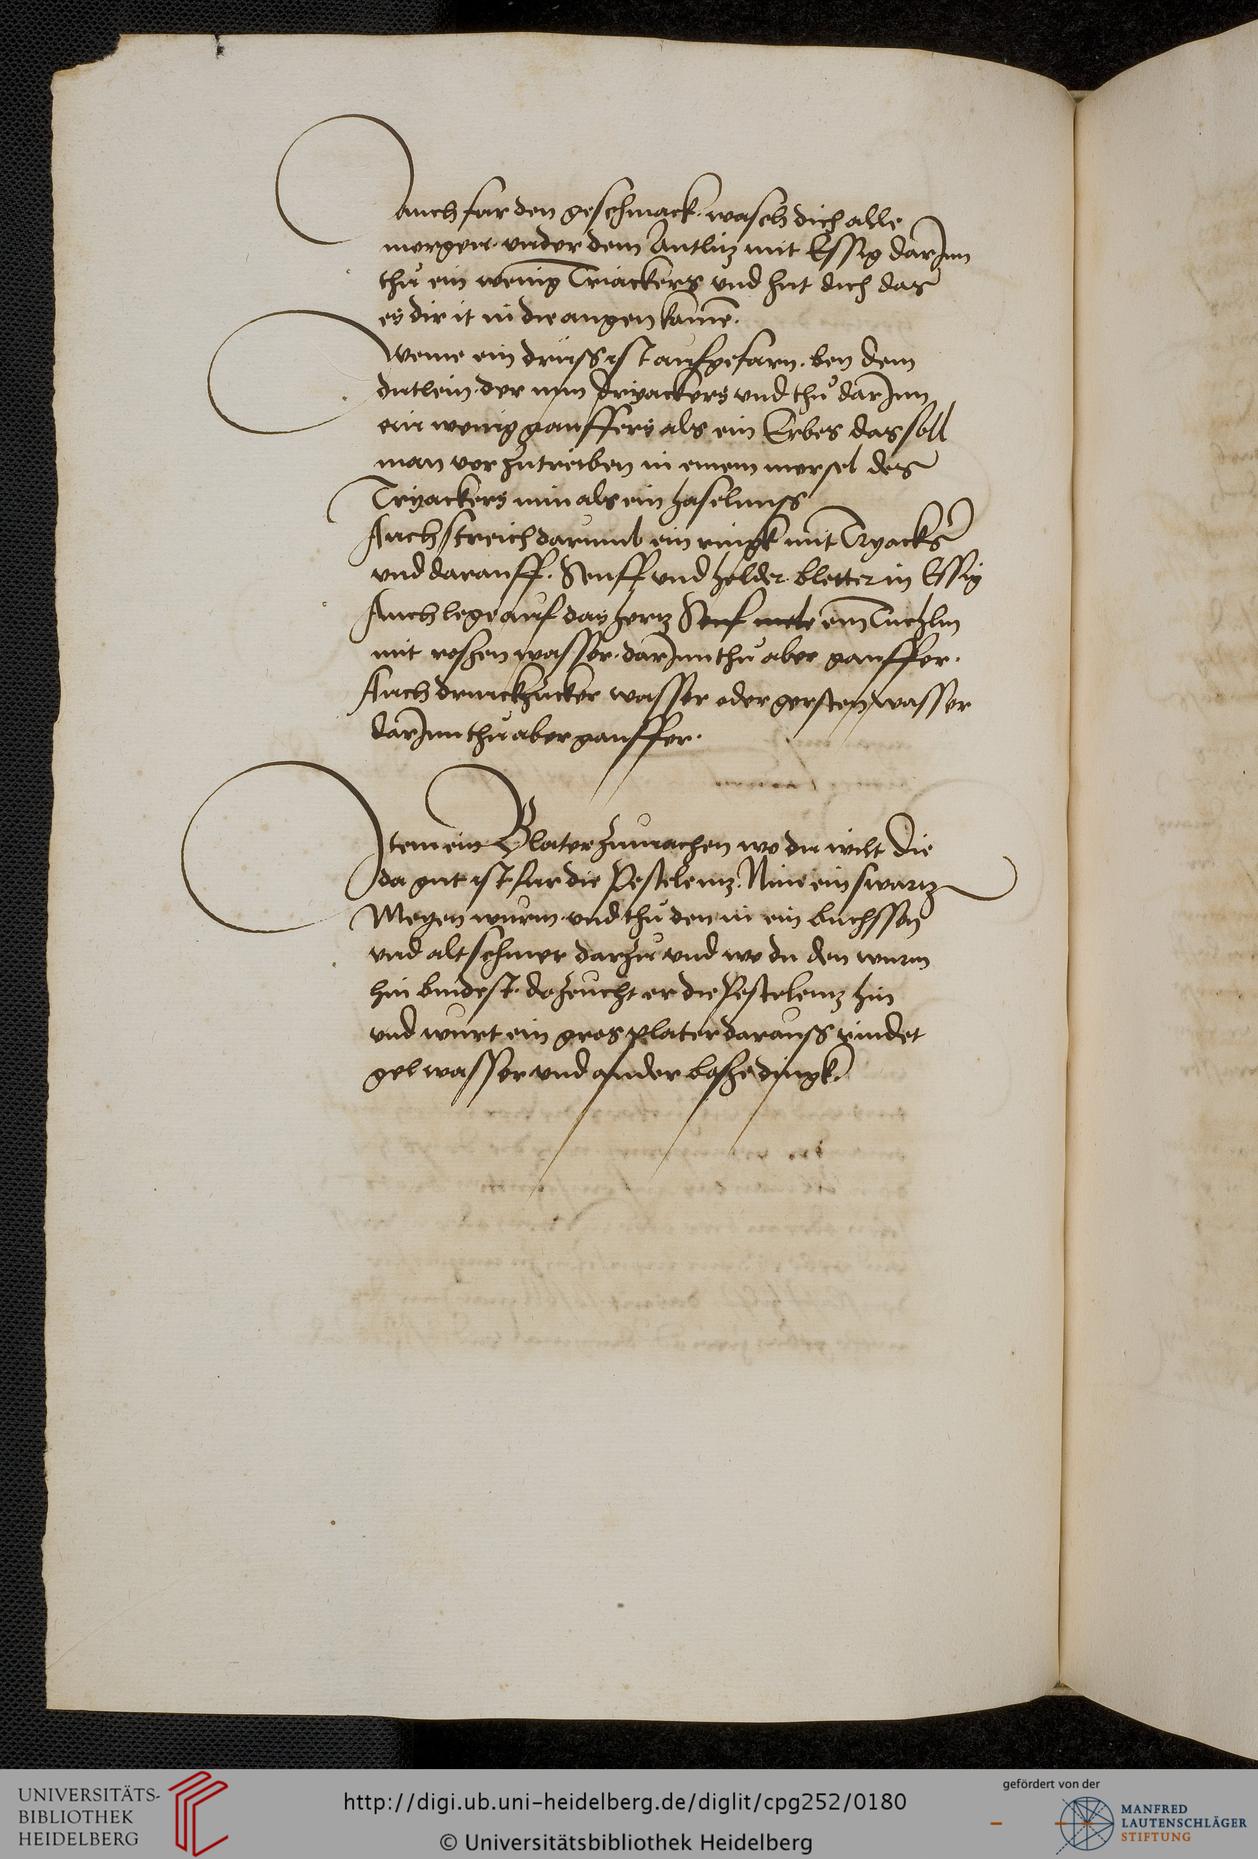 Auch fur den geschmack wasch dich alle
morgen vnder dem Antlitz mit Essig darJnn
thu ein wenig Triackers vnd hut dich das
es dir it in die augen kome.
Weme ein druss ist aufgefarn bey dem
dutlein der nym Dryackers vnd thu darJnn
ein wenig gauffers als ein Erbes das soll
man vor zutreiben in einem mersel des
Tryackers nim als ein haselnuss
Auch streich darumb ein ringk mit Tryackers
vnd darauff Senff vnd holder bletter in Essig
Auch lege auf das hertz ein Tuchlin
mit roshen wasser darJnn thu aber gauffer.
Auch drinck zucker wasser oder gersten wasser
darJnn thu aber gauffer.
Item ein Blater zumachen wo du wilt die
da gut ist fur die Pestelentz. Nime ein swartz
Meyen wurm vnd thu den in ein buchssen
vnd alt schmer darzu vnd wo du den wurm
hin bindest do zeucht er die Pestelentz hin
vnd wurt ein gros plater darauss rindet
gel wasser vnd ander boshe dingk.
UNIVERSITÄTS-
BIBLIOTHEK
HEIDELBERG
http://digi.ub.uni-heidelberg.de/diglit/cpg252/0180
© Universitätsbibliothek Heidelberg
gefördert von der
MANFRED
LAUTENSCHLÄGER
STIFTUNG